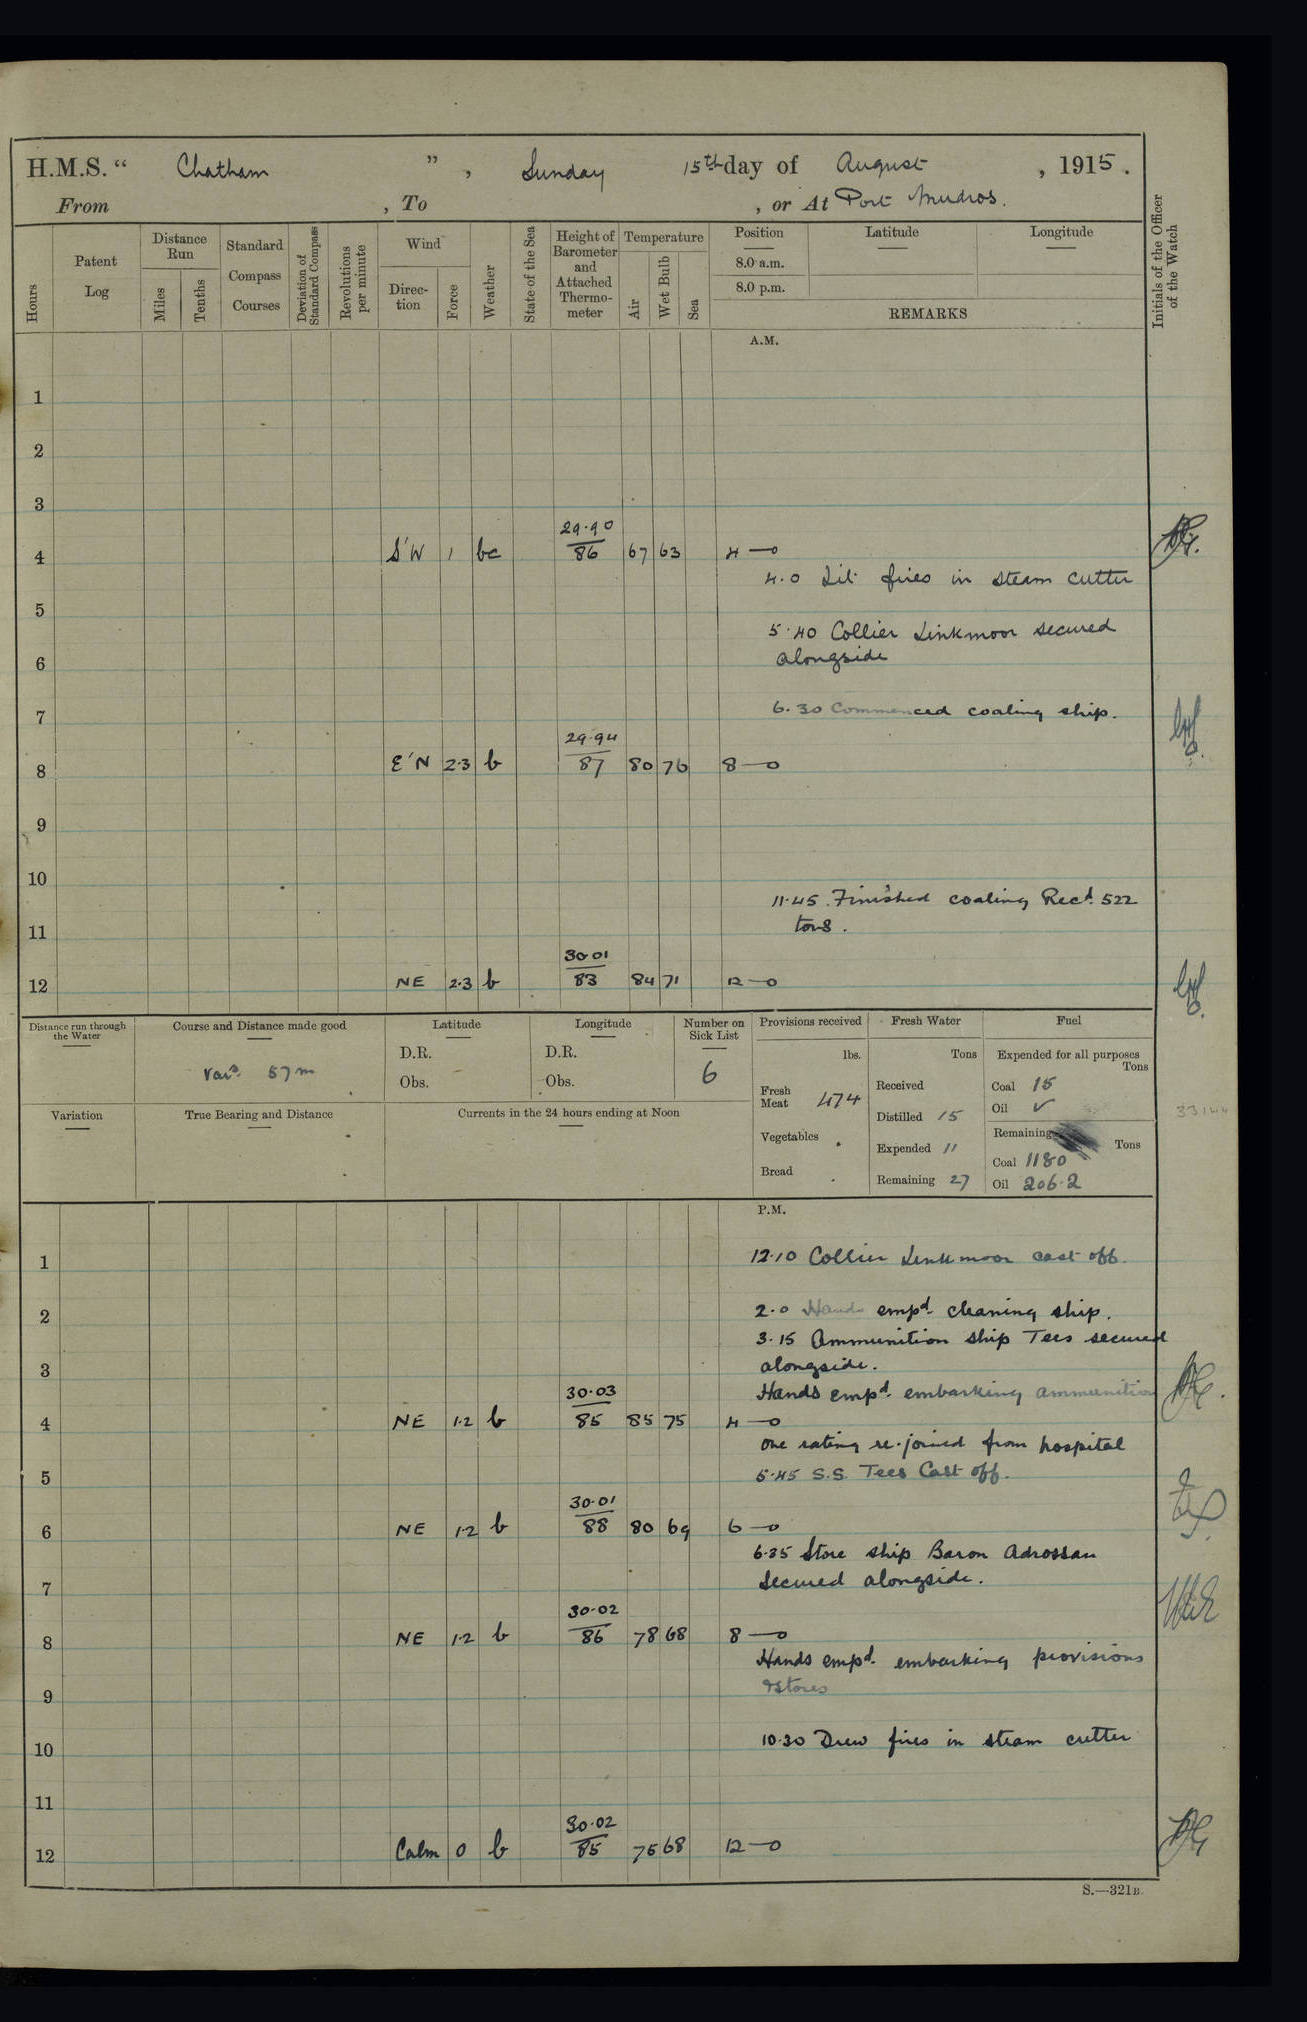 H.M.S. “ Chatham ” , Sunday 15th day of August , 1915 .
From , To , or At Port Mudros.
Hours
Patent Log
Distance Run
Miles
Tenths
Standard Compass Courses
Deviation of Standard Compass
Revolutions per minute
Wind
Direction
Force
Weather
State of the Sea
Height of Barometer and Attached Thermometer
Temperature
Air
Wet Bulb
Sea
Position
8.0 a.m.
8.0 p.m.
Latitude
Longitude
REMARKS
Initials of the Officer of the Watch
A.M.
1
2
3
4 S'W 1 bc 29.90 / 86 67 63 4—0
4.0 Lit fires in steam cutter
5
5.40 Collier Linkmoor secured
alongside
6
6.30 Commenced coaling ship.
7
8 E'N 2.3 b 29.94 / 87 80 76 8—0
9
10
11.45. Finished coaling Recd. 522
tons.
11
12 NE 2.3 b 30.01 / 83 84 71 12—0
Distance run through the Water
Course and Distance made good
Vars. 57m
Latitude
D.R.
Obs.
Longitude
D.R.
Obs.
Number on Sick List
6
Variation
True Bearing and Distance
Currents in the 24 hours ending at Noon
Provisions received
lbs.
Fresh Meat 474
Vegetables
Bread
Fresh Water
Tons
Received
Distilled 15
Expended 11
Remaining 27
Fuel
Expended for all purposes
Tons
Coal 15
Oil ✓
Remaining
Tons
Coal 1180
Oil 206.2
33144
P.M.
12.10 Collier Linkmoor cast off.
1
2.0 Hands empd. cleaning ship.
2
3.15 Ammunition ship Tees secured
alongside.
3
Hands empd. embarking ammunition
4 NE 1.2 b 30.03 / 85 85 75 4—0
One rating re-joined from hospital
5.45 S.S. Tees Cast off.
5
6 NE 1.2 b 30.01 / 88 80 69 6—0
6.35 Store ship Baron Adrossan
secured alongside.
7
8 NE 1.2 b 30.02 / 86 78 68 8—0
Hands empd. embarking provisions
& stores
9
10.30 Drew fires in steam cutter
10
11
12 Calm 0 b 30.02 / 85 75 68 12—0
S.—321B.